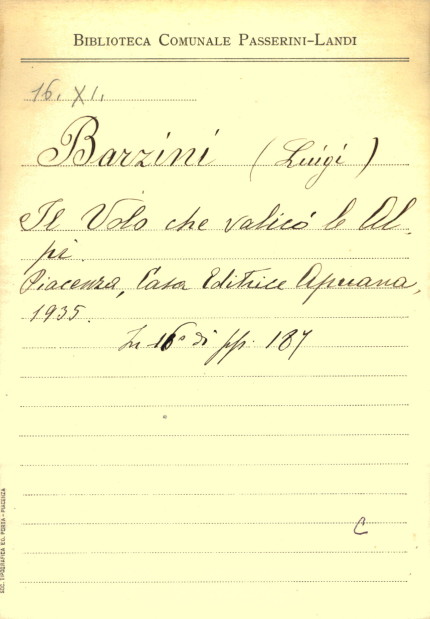 BIBLIOTECA COMUNALE PASSERINI-LANDI
16. XI.
Barzini (Luigi)
Il Volo che valicò le Al-
pi.
Piacenza, Casa Editrice Apuana,
1935.
In 16° di pp. 187
C
SOC. TIPOGRAFICA ED. PORTA - PIACENZA